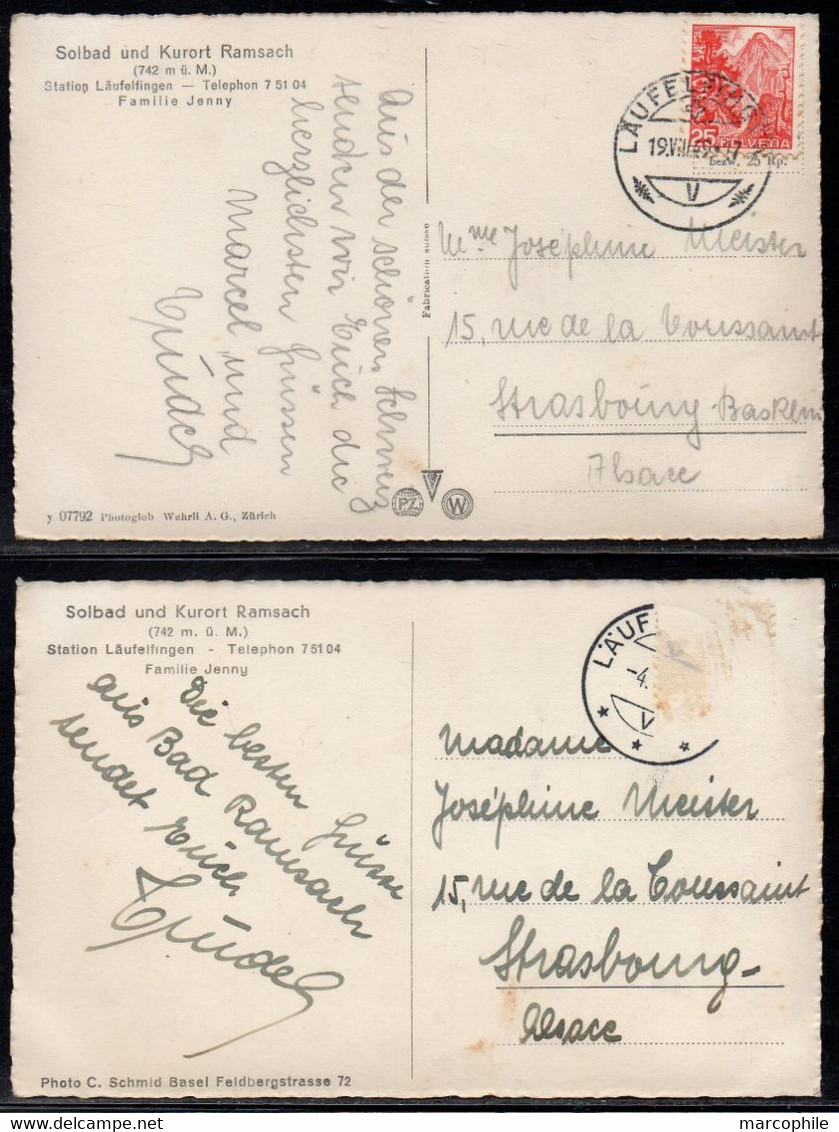 Solbad und Kurort Ramsach
(742 m ü. M.)
Station Läufelfingen — Telephon 7 51 04
Familie Jenny
Aus der schönen Schweiz
senden wir Euch die
herzlichsten Grüssen
Marcel und
Trudel
y 07792 Photoglob Wehrli A. G., Zürich
Fabrication suisse
PZ
W
25
HELVETIA
bezw. 25 Rp.
LÄUFELFINGEN
V
Mme Joséphine Meister
15, rue de la Toussaint
Strasbourg
Alsace
Solbad und Kurort Ramsach
(742 m. ü. M.)
Station Läufelfingen - Telephon 751 04
Familie Jenny
Die besten Grüsse
aus Bad Ramsach
sendet Euch
Trudel
Photo C. Schmid Basel Feldbergstrasse 72
LÄUF
-4.
V
Madame
Joséphine Meister
15, rue de la Toussaint
Strasbourg-
Alsace
marcophile